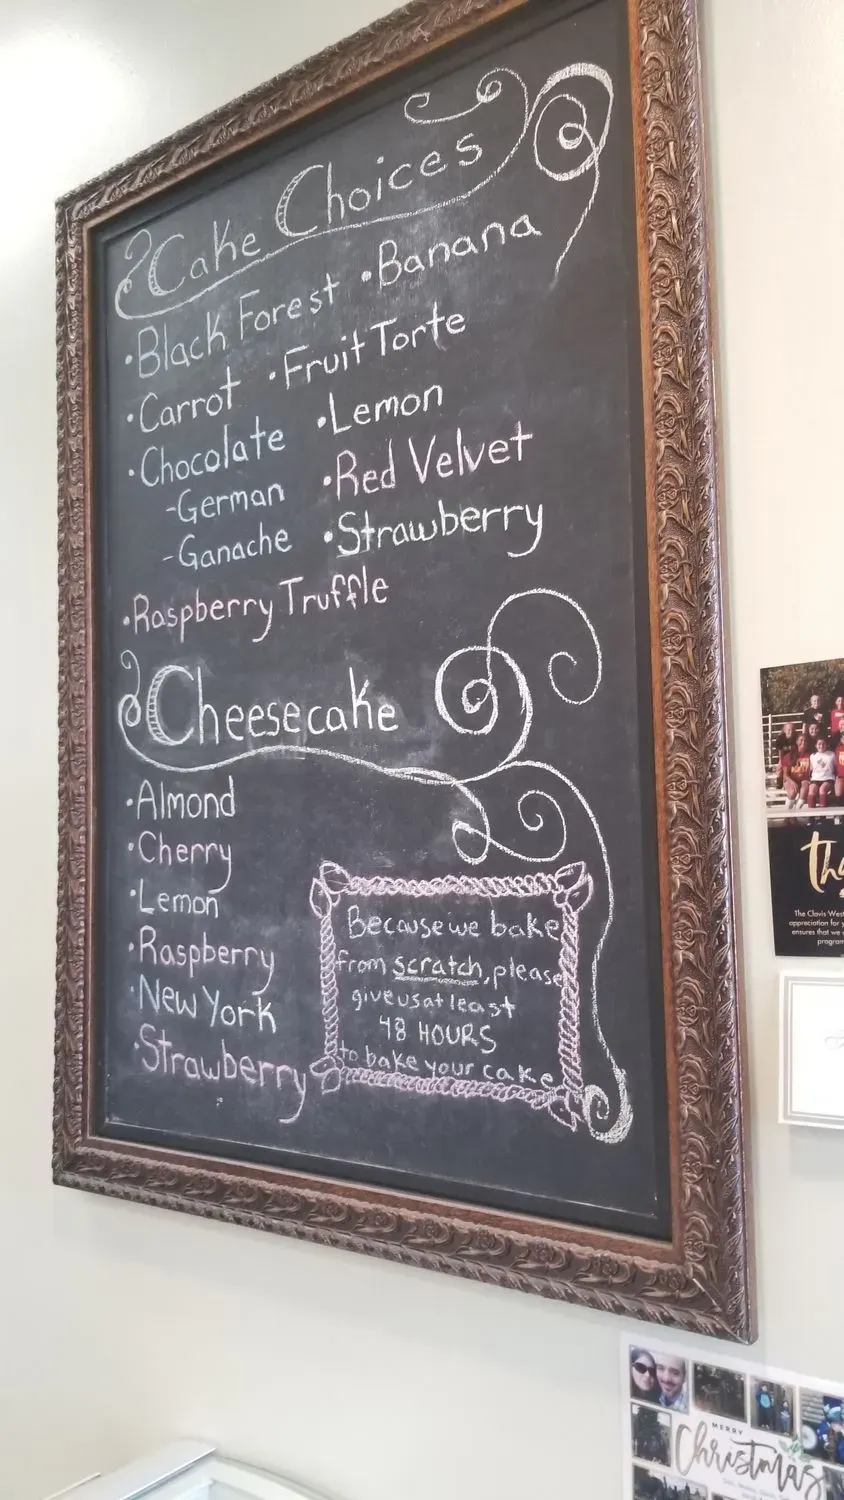 Cake Choices
• Black Forest • Banana
• Carrot • Fruit Torte
• Chocolate • Lemon
-German • Red Velvet
-Ganache • Strawberry
• Raspberry Truffle
Cheesecake
• Almond
• Cherry
• Lemon
• Raspberry
• New York
• Strawberry
Because we bake
from scratch, please
give us at least
48 HOURS
to bake your cake
The Clovis West
appreciation for
ensures that we
program
MERRY
Christmas